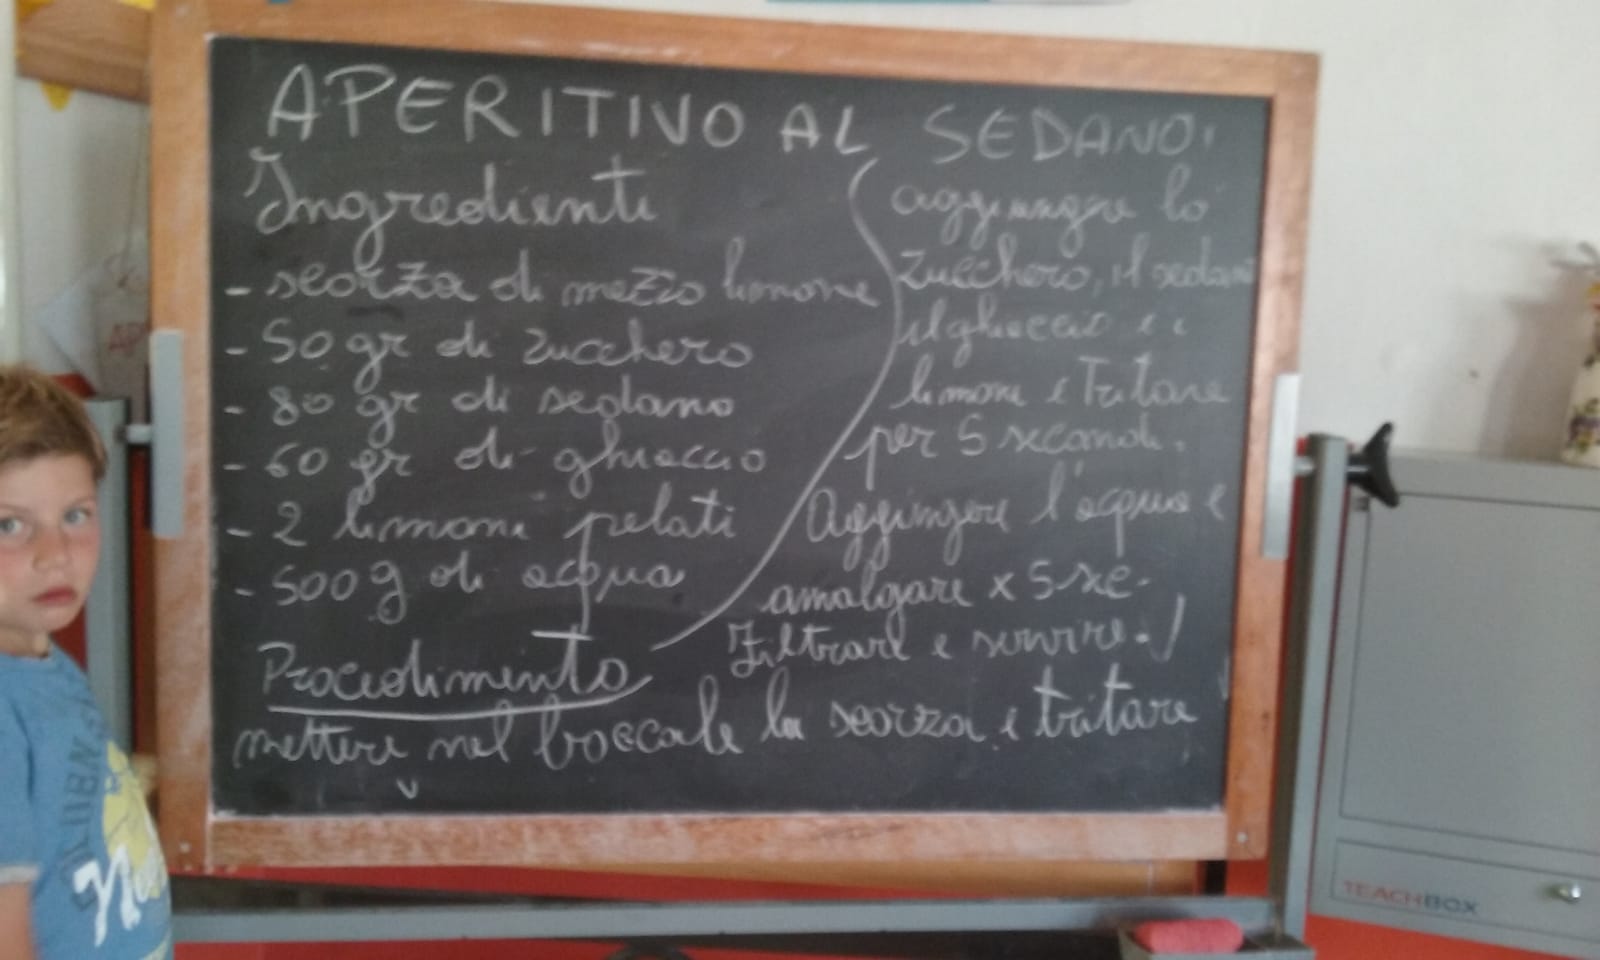 APERITIVO AL SEDANO.
Ingredienti
- scorza di mezzo limone
- 50 gr di zucchero
- 80 gr di sedano
- 60 gr di ghiaccio
- 2 limoni pelati
- 500 g di acqua
Procedimento
mettere nel boccale la scorza e tritare
aggiungere lo
zucchero, il sedano
il ghiaccio e i
limoni e Tritare
per 5 secondi.
Aggiungere l'acqua e
amalgare x 5 se-
Filtrare e servire.
TEACHBOX